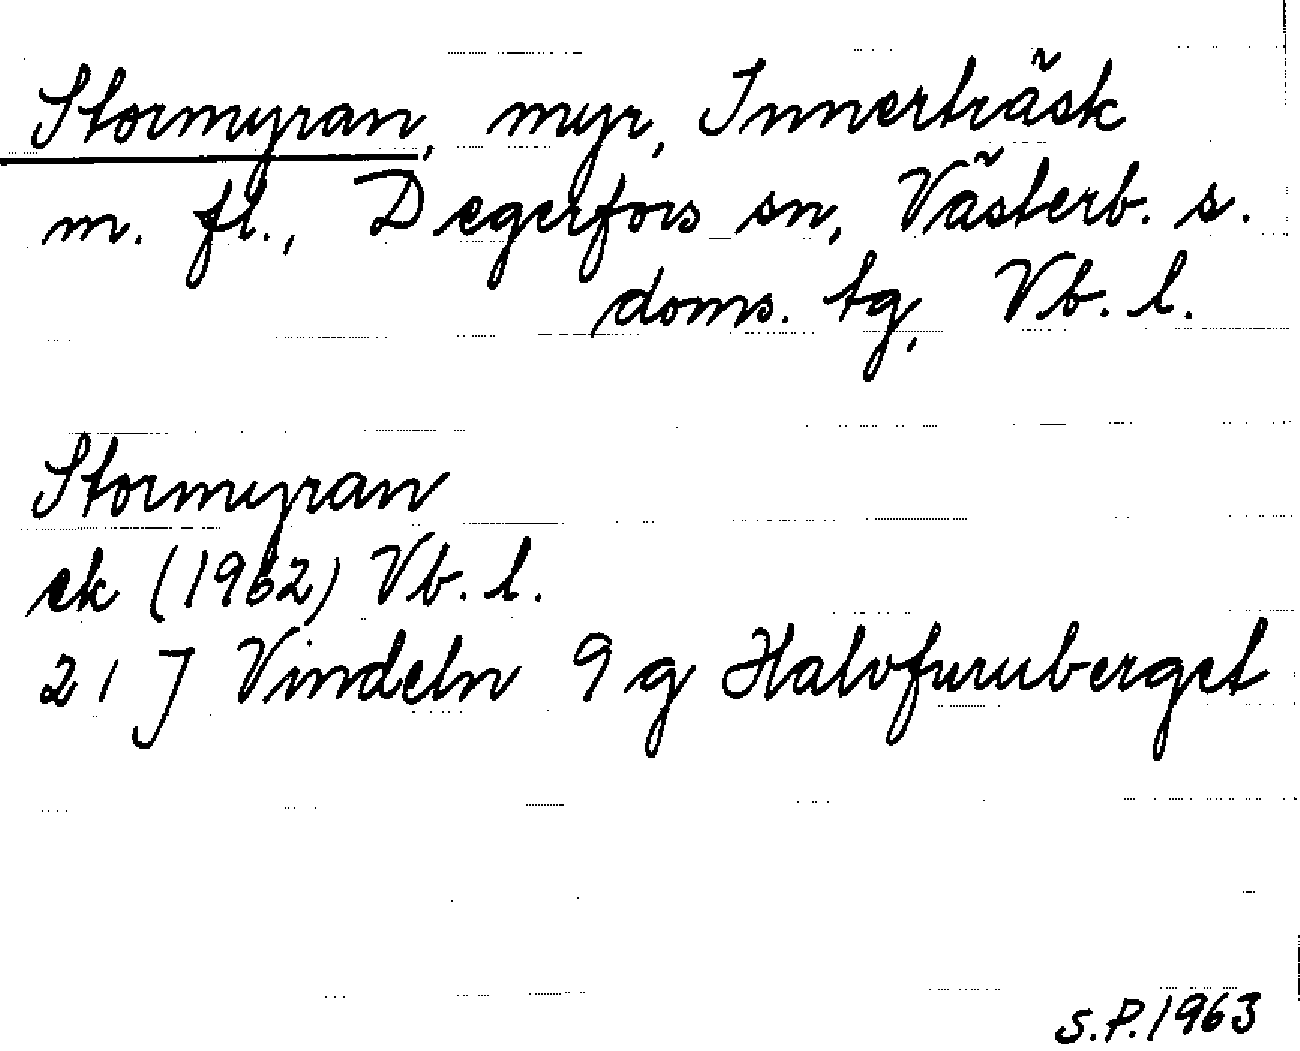 Stormyran, myr, Innerträsk
m. fl., Degerfors sn, Västerb. s.
doms. tg, Vb. l.
Stormyran
ek (1962) Vb. l.
21 J Vindeln 9 g Halvfuruberget
S.P. 1963